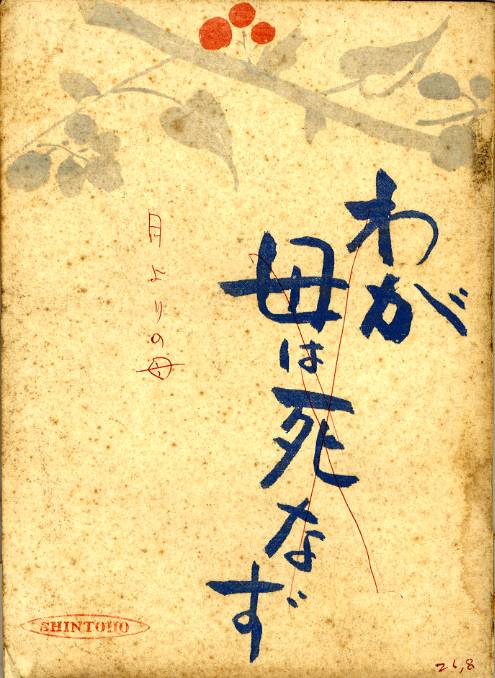 わが
母は死なず
月よりの母
SHINTOHO
26,8